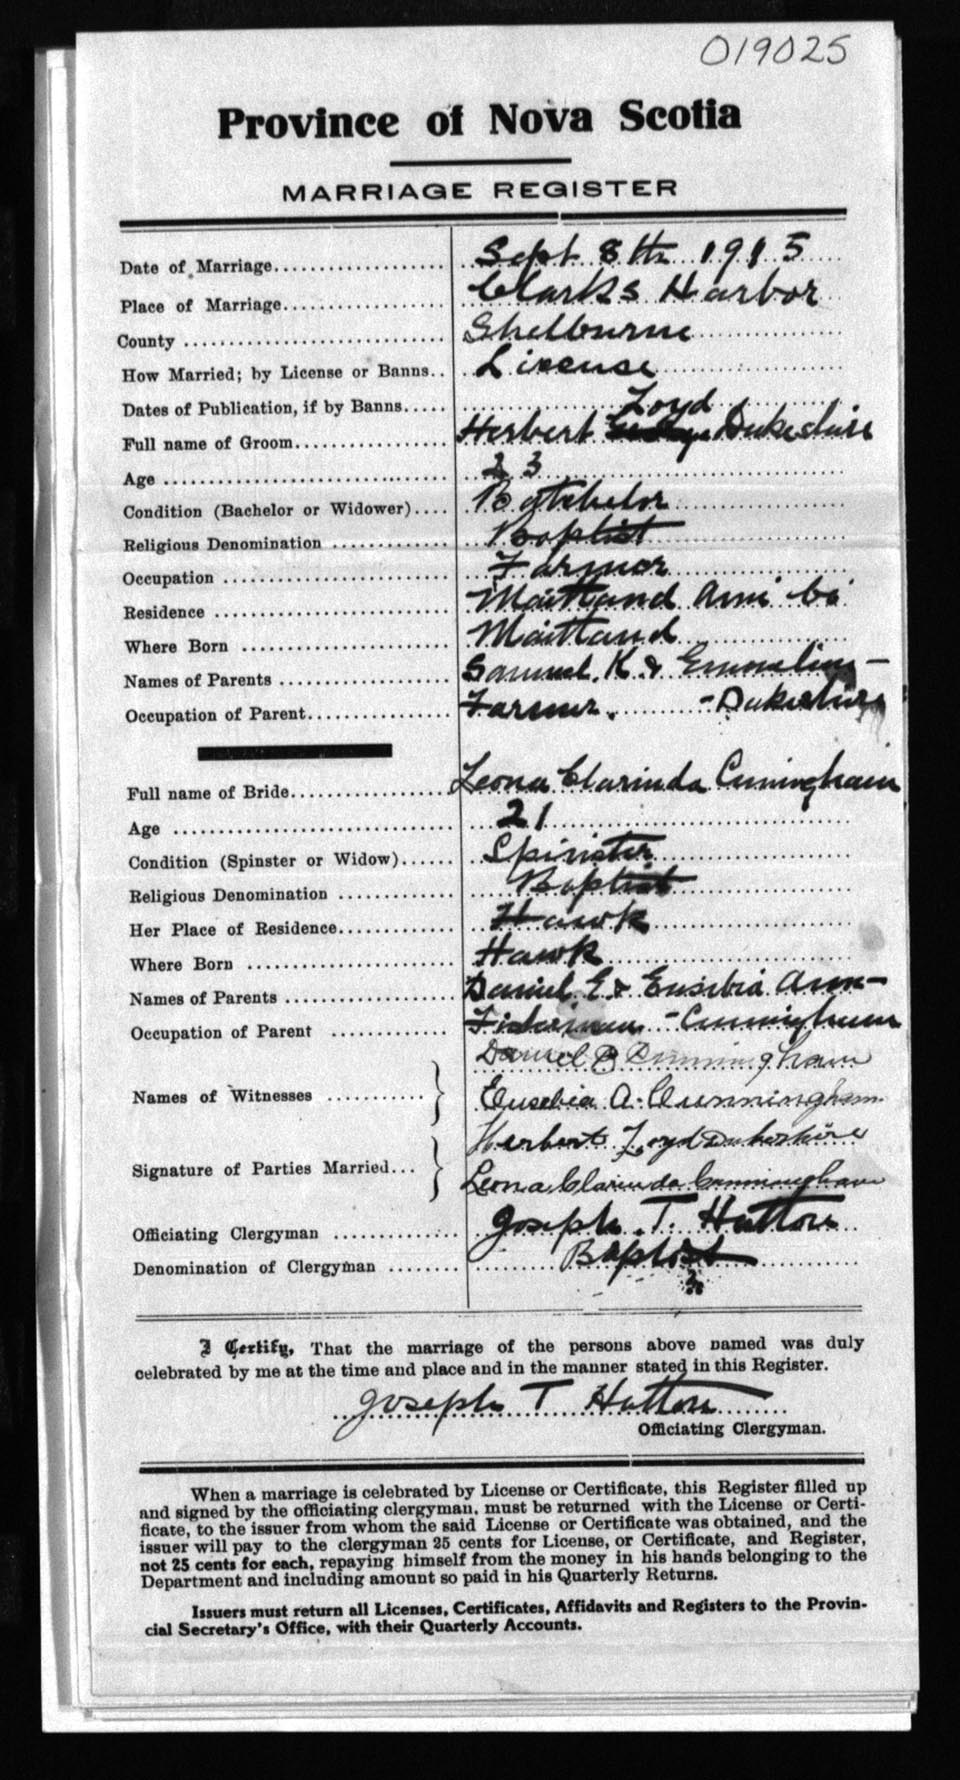 019025
Province of Nova Scotia
MARRIAGE REGISTER
Date of Marriage Sept 8th 1915
Place of Marriage Clarks Harbor
County Shelburne
How Married; by License or Banns License
Dates of Publication, if by Banns
Loyd
Full name of Groom Herbert Dukeshire
Age 23
Condition (Bachelor or Widower) Batchelor
Religious Denomination Baptist
Occupation Farmer
Residence Maitland Ann Co
Where Born Maitland
Names of Parents Samuel K & Emmeline -
Occupation of Parent Farmer. - Dukeshire
Full name of Bride Leona Clarinda Cuningham
Age 21
Condition (Spinster or Widow) Spinster
Religious Denomination Baptist
Her Place of Residence Hawk
Where Born Hawk
Names of Parents Daniel E & Eusebia Ann -
Occupation of Parent Fisherman - Cunningham
Names of Witnesses Daniel Cunningham
Eusebia A. Cunningham
Signature of Parties Married Herbert Loyd Dukeshire
Leona Clarinda Cunningham
Officiating Clergyman Joseph. T. Hatton
Denomination of Clergyman Baptist
I Certify, That the marriage of the persons above named was duly
celebrated by me at the time and place and in the manner stated in this Register.
Joseph T Hatton
Officiating Clergyman.
When a marriage is celebrated by License or Certificate, this Register filled up
and signed by the officiating clergyman, must be returned with the License or Certi-
ficate, to the issuer from whom the said License or Certificate was obtained, and the
issuer will pay to the clergyman 25 cents for License, or Certificate, and Register,
not 25 cents for each, repaying himself from the money in his hands belonging to the
Department and including amount so paid in his Quarterly Returns.
Issuers must return all Licenses, Certificates, Affidavits and Registers to the Provin-
cial Secretary's Office, with their Quarterly Accounts.